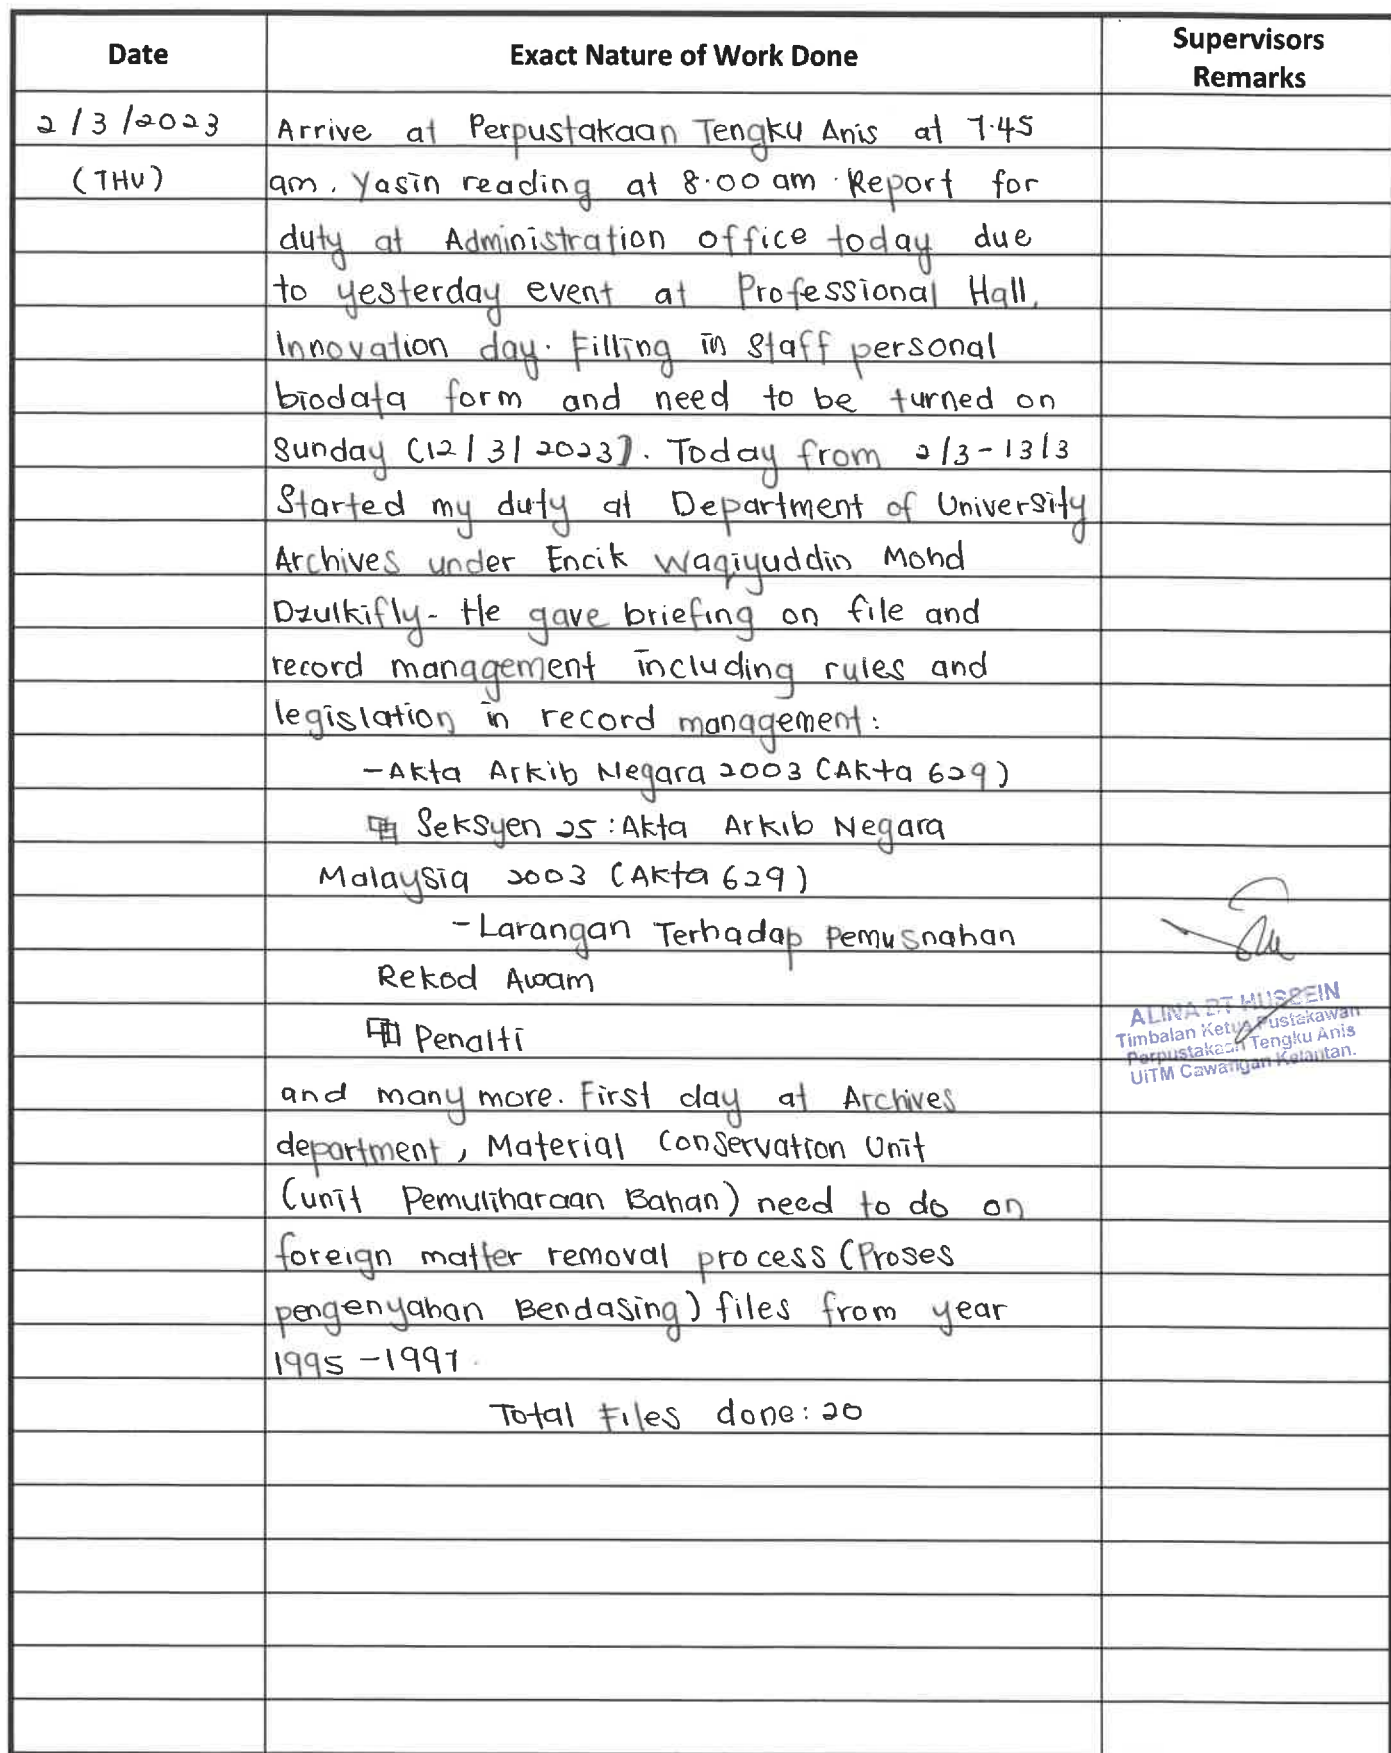 Date
Exact Nature of Work Done
Supervisors
Remarks
2/3/2023
(THU)
Arrive at Perpustakaan Tengku Anis at 7.45
am. Yasin reading at 8.00 am. Report for
duty at Administration office today due
to yesterday event at Professional Hall,
Innovation day. Filling in Staff personal
biodata form and need to be turned on
Sunday (12/3/2023). Today from 2/3-13/3
Started my duty at Department of University
Archives under Encik Waqiyuddin Mohd
Dzulkifly. He gave briefing on file and
record management including rules and
legislation in record management:
-Akta Arkib Negara 2003 (Akta 629)
Seksyen 25: Akta Arkib Negara
Malaysia 2003 (Akta 629)
-Larangan Terhadap Pemusnahan
Rekod Awam
Penalti
and many more. First day at Archives
department, Material Conservation Unit
(unit Pemuliharaan Bahan) need to do on
foreign matter removal process (Proses
pengenyahan Bendasing) files from year
1995-1997.
Total Files done: 20
ALINA BT HUSSEIN
Timbalan Ketua Pustakawan
Perpustakaan Tengku Anis
UiTM Cawangan Kelantan.